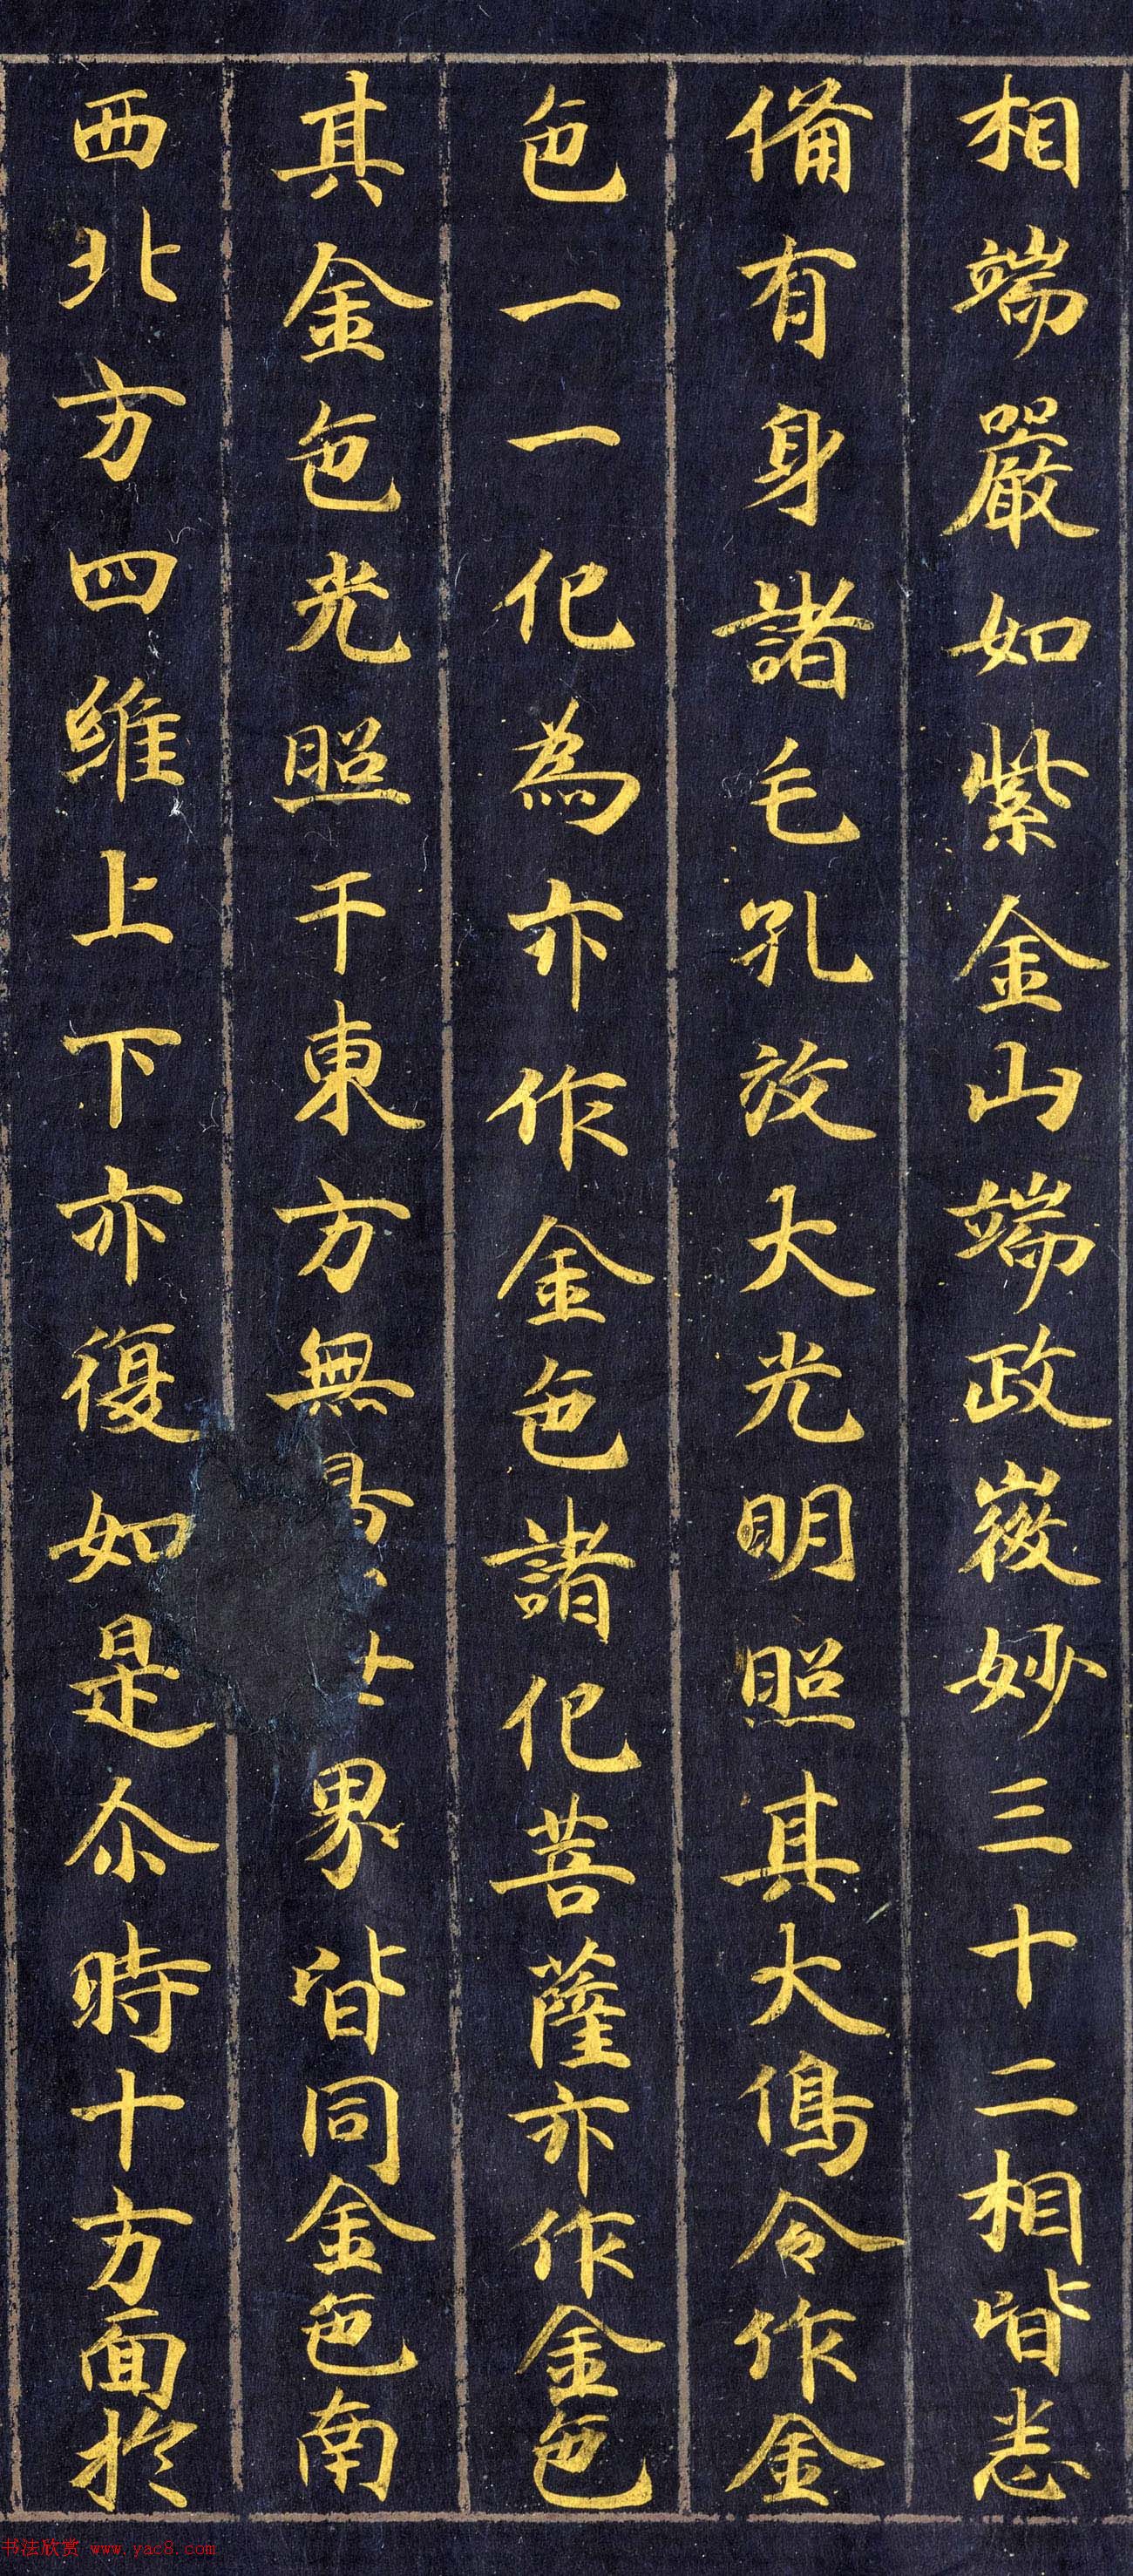 相端嚴如紫金山端政微妙三十二相皆悉
備有身諸毛孔放大光明照其大像令作金
色一一化象亦作金色諸化菩薩亦作金色
其金色光照于東方無界皆同金色南
西北方四維上下亦復如是尒時十方面於
书法欣赏 www.yac8.com